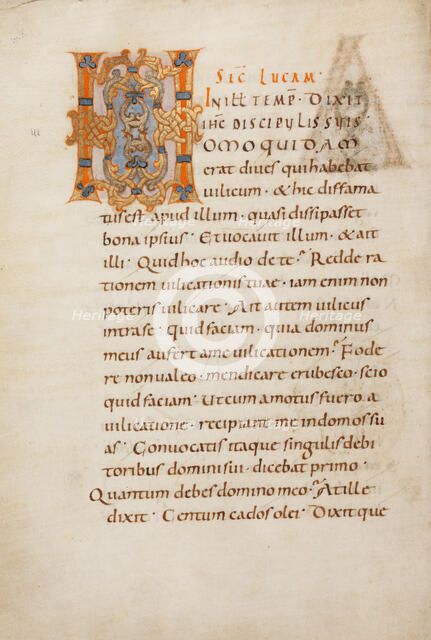 SEC LUCAM ·
IN ILL TEMP · DIXIT
IHC DISCIPULIS SUIS
HOMO QUIDAM
erat diues qui habebat
uilicum · & hic diffama
tus est apud illum · quasi dissipasset
bona ipsius · Et uocauit illum · & ait
illi · Quid hoc audio de te · Redde ra
tionem uilicationis tuae · iam enim non
poteris uilicare · Ait autem uilicus
intra se · Quid faciam · quia dominus
meus aufert a me uilicationem · Fode
re non ualeo · mendicare erubesco · scio
quid faciam · Ut cum amotus fuero a
uilicatione · recipiant me in domos su
as · Conuocatis itaque singulis debi
toribus domini sui · dicebat primo ·
Quantum debes domino meo · At ille
dixit · Centum cados olei · Dixit que
Heritage
Heritage
Heritage
Heritage
Heritage
Heritage